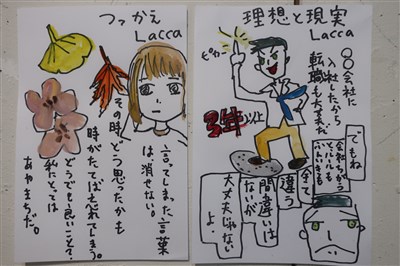 つっかえ
Lacca
言ってしまった言葉
は、消せない。
その時どう思ったかも
時がたてば忘れてしまう。
どうでも良いこと?
私にとっては
あやまちだ。
理想と現実
Lacca
〇〇会社に
入社したから
転職も大丈夫
ピカー
以上
でもね
会社がちがう
とルールも
ふんいきも
全て
違う
間違いは
ないが
大丈夫じゃない
よ.